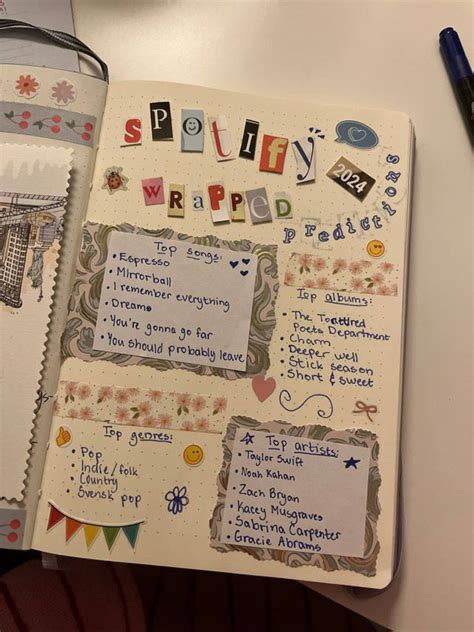 SPOTIFY
WRAPPED
2024
predictions
Top songs:
• Espresso
• Mirrorball
• I remember everything
• Dreams
• You're gonna go far
• You should probably leave
Top albums:
• The Tortured
Poets Department
• Charm
• Deeper well
• Stick season
• Short & sweet
Top genres:
• Pop
• Indie/folk
• Country
• Svensk pop
Top artists:
• Taylor Swift
• Noah Kahan
• Zach Bryan
• Kacey Musgraves
• Sabrina Carpenter
• Gracie Abrams